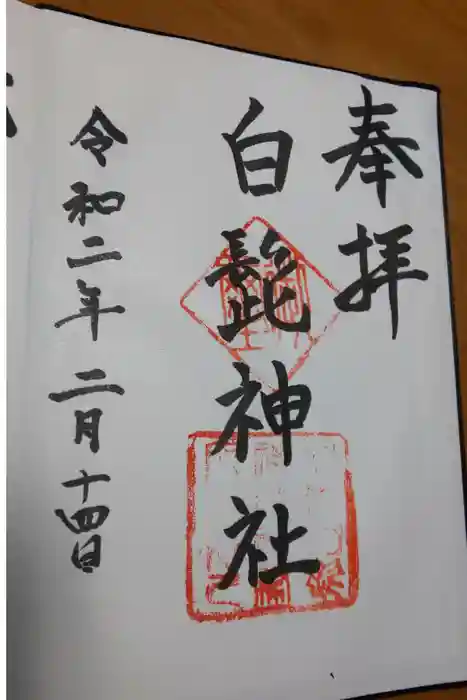 奉拝
白髭神社
令和二年二月十四日